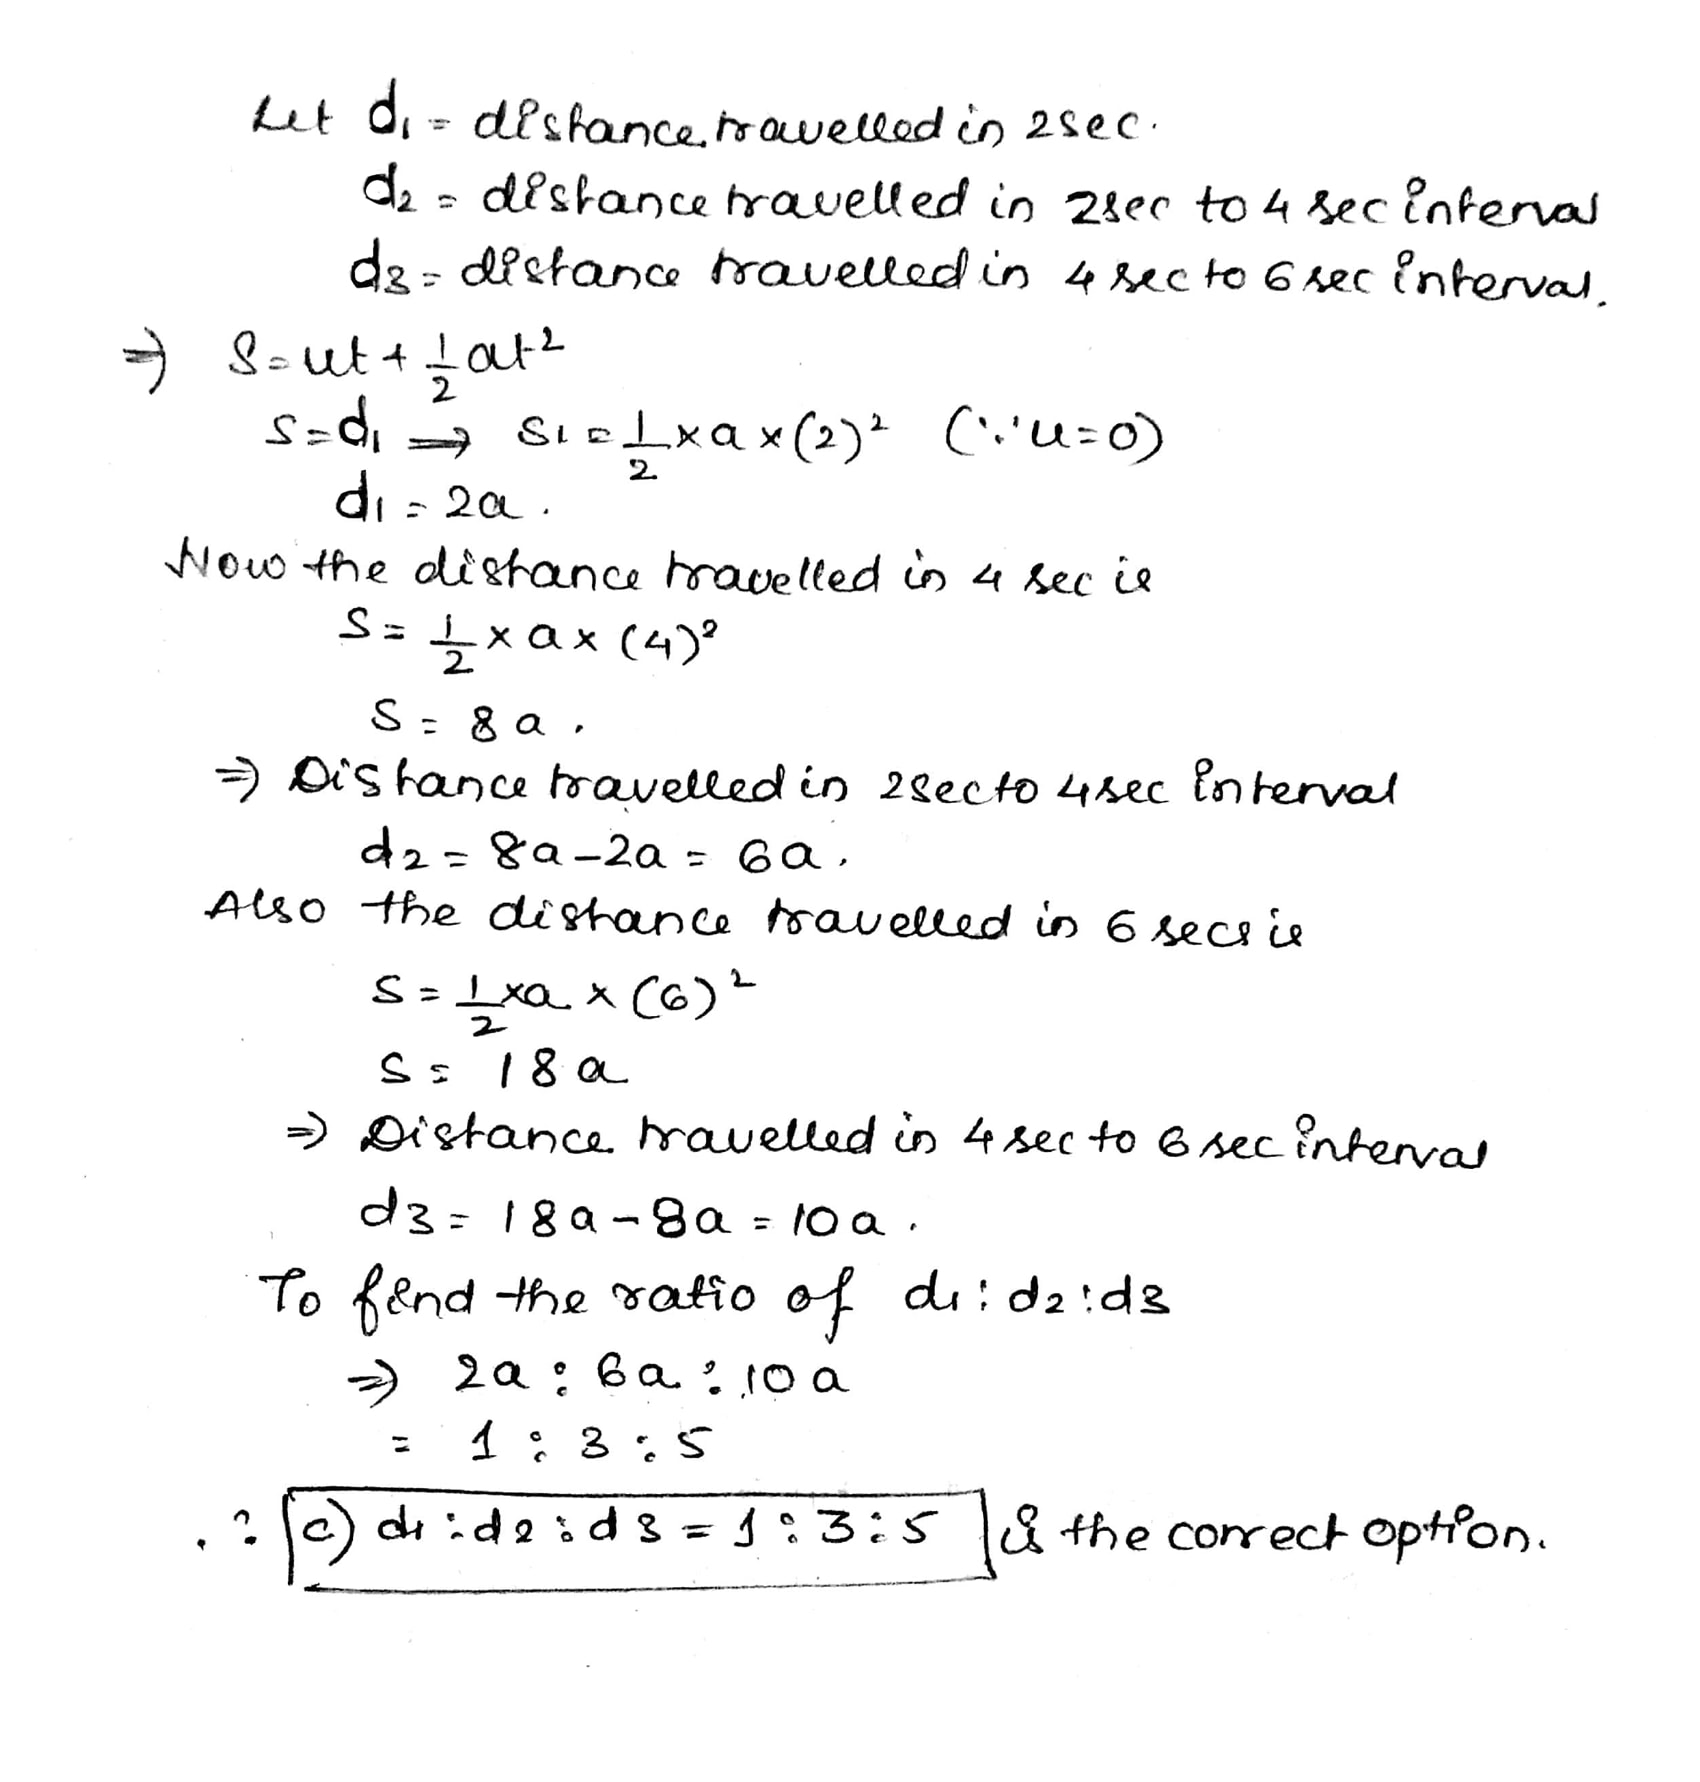 Let d₁ = distance travelled in 2sec.
d₂ = distance travelled in 2sec to 4 sec interval
d₃ = distance travelled in 4 sec to 6 sec interval.
⇒ S = ut + 1/2 at²
S = d₁ ⇒ S₁ = 1/2 × a × (2)² (∵ u = 0)
d₁ = 2a.
Now the distance travelled in 4 sec is
S = 1/2 × a × (4)²
S = 8a.
⇒ Distance travelled in 2sec to 4sec interval
d₂ = 8a - 2a = 6a.
Also the distance travelled in 6 secs is
S = 1/2 × a × (6)²
S = 18a
⇒ Distance travelled in 4 sec to 6 sec interval
d₃ = 18a - 8a = 10a.
To find the ratio of d₁ : d₂ : d₃
⇒ 2a : 6a : 10a
= 1 : 3 : 5
∴ c) d₁ : d₂ : d₃ = 1 : 3 : 5 is the correct option.